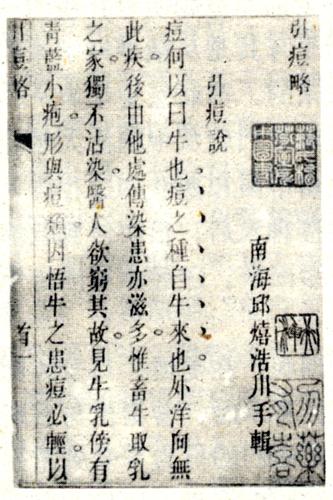 引痘略
南海邱熺浩川手輯
引痘說
痘何以曰牛也痘之種自牛來也外洋向無
此疾後由他處傳染患亦滋多惟畜牛取乳
之家獨不沾染醫人欲窮其故見牛乳傍有
青藍小疱形與痘類因悟牛之患痘必輕以
引痘略
首一